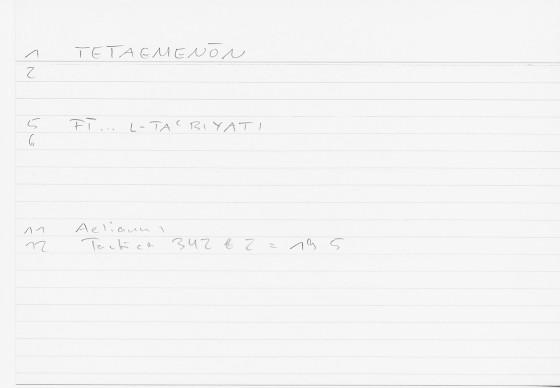 1 TETAGMENŌN
2
5 FĪ... L-TAʿBIYATI
6
11 Aeliani
12 Tactica 3421 & 2 = 19 5